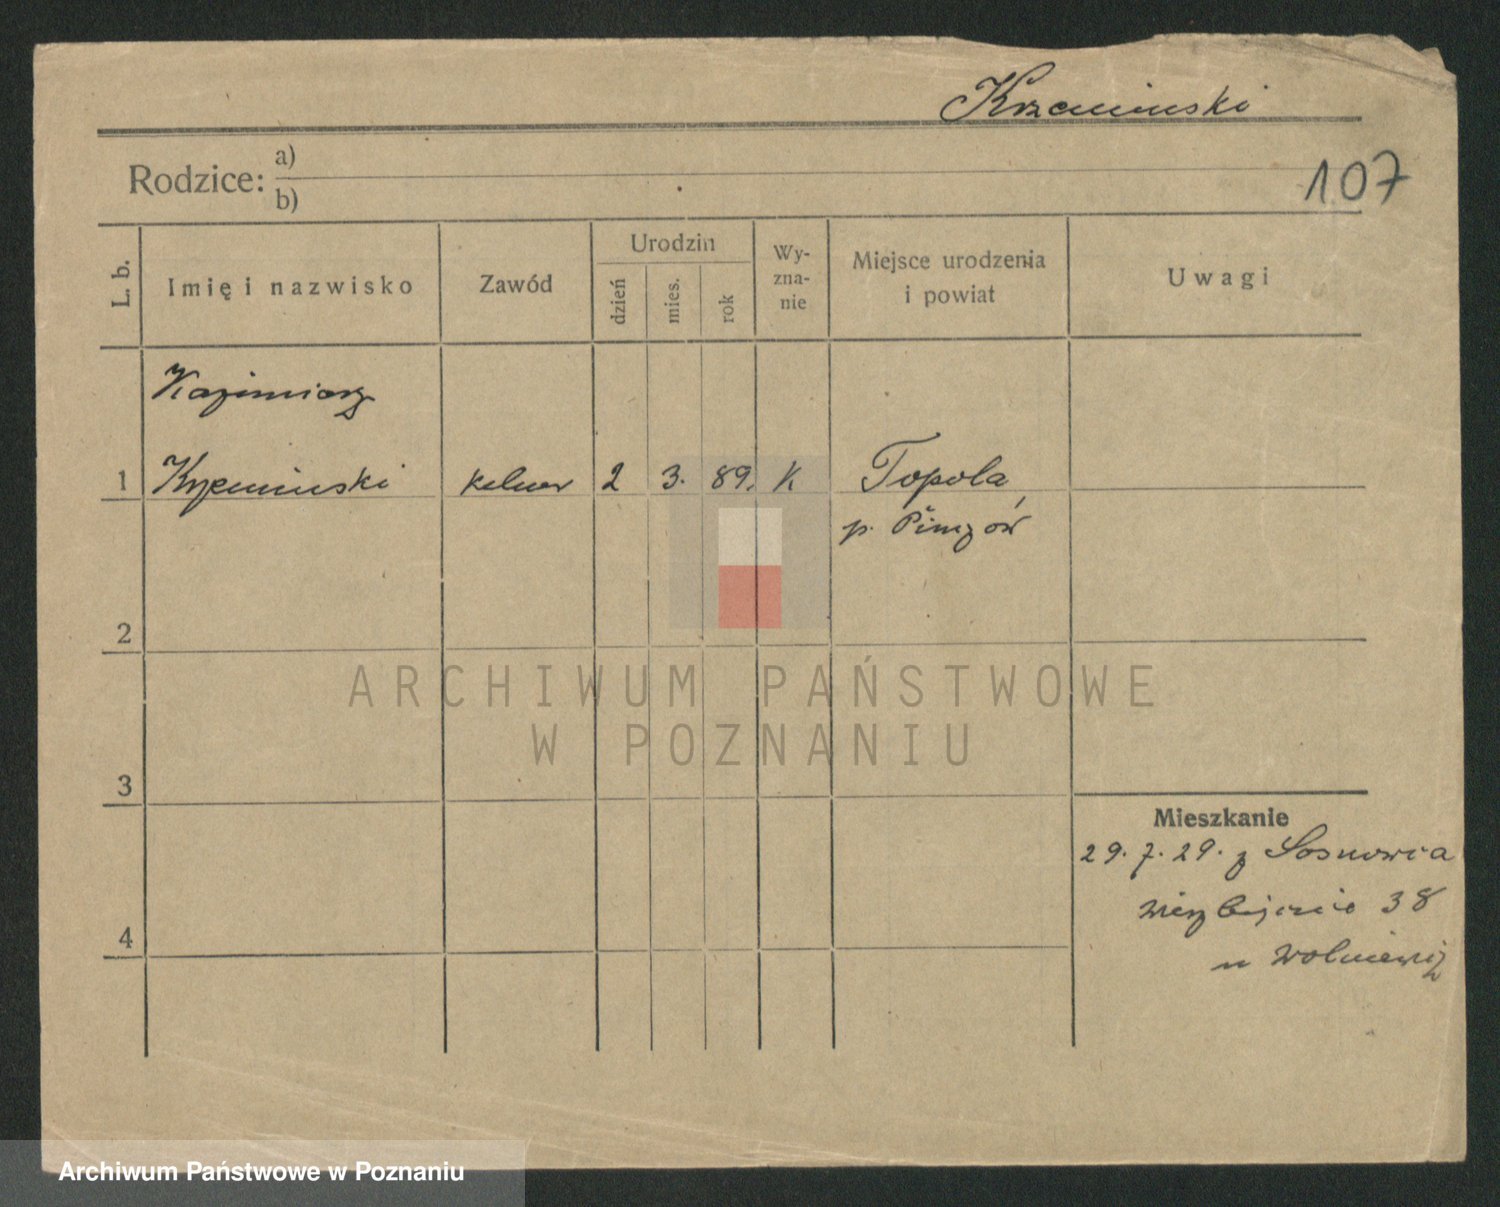 Krzeminski
107
Rodzice: a)
b)
L. b.
Imię i nazwisko
Zawód
Urodzin
dzień
mies.
rok
Wy-
zna-
nie
Miejsce urodzenia
i powiat
Uwagi
Kazimierz
1 Krzeminski kelner 2 3. 89. K Topola
p. Pinczów
2
3
4
Mieszkanie
29. 7. 29. z Sosnowca
38
u
ARCHIWUM PAŃSTWOWE
W POZNANIU
Archiwum Państwowe w Poznaniu